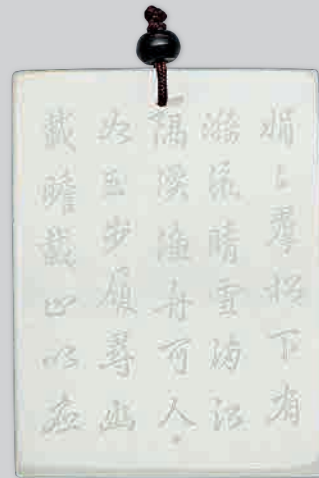 娟々羣松下有
漪流晴雪滿江
隔溪漁舟可人
如玉步尋幽
載瞻載止